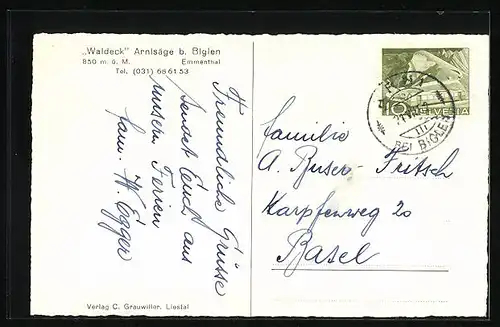 „Waldeck" Arnisäge b. Biglen
850 m. ü. M. Emmenthal
Tel. (031) 68 61 53
Freundliche Grüsse
sendet Euch aus
unsern Ferien
fam. W. Egger
Verlag C. Grauwiller, Liestal
10 HELVETIA
BEI BIGLEN
Familie
A. Buser-Fritsch
Karpfenweg 20
Basel